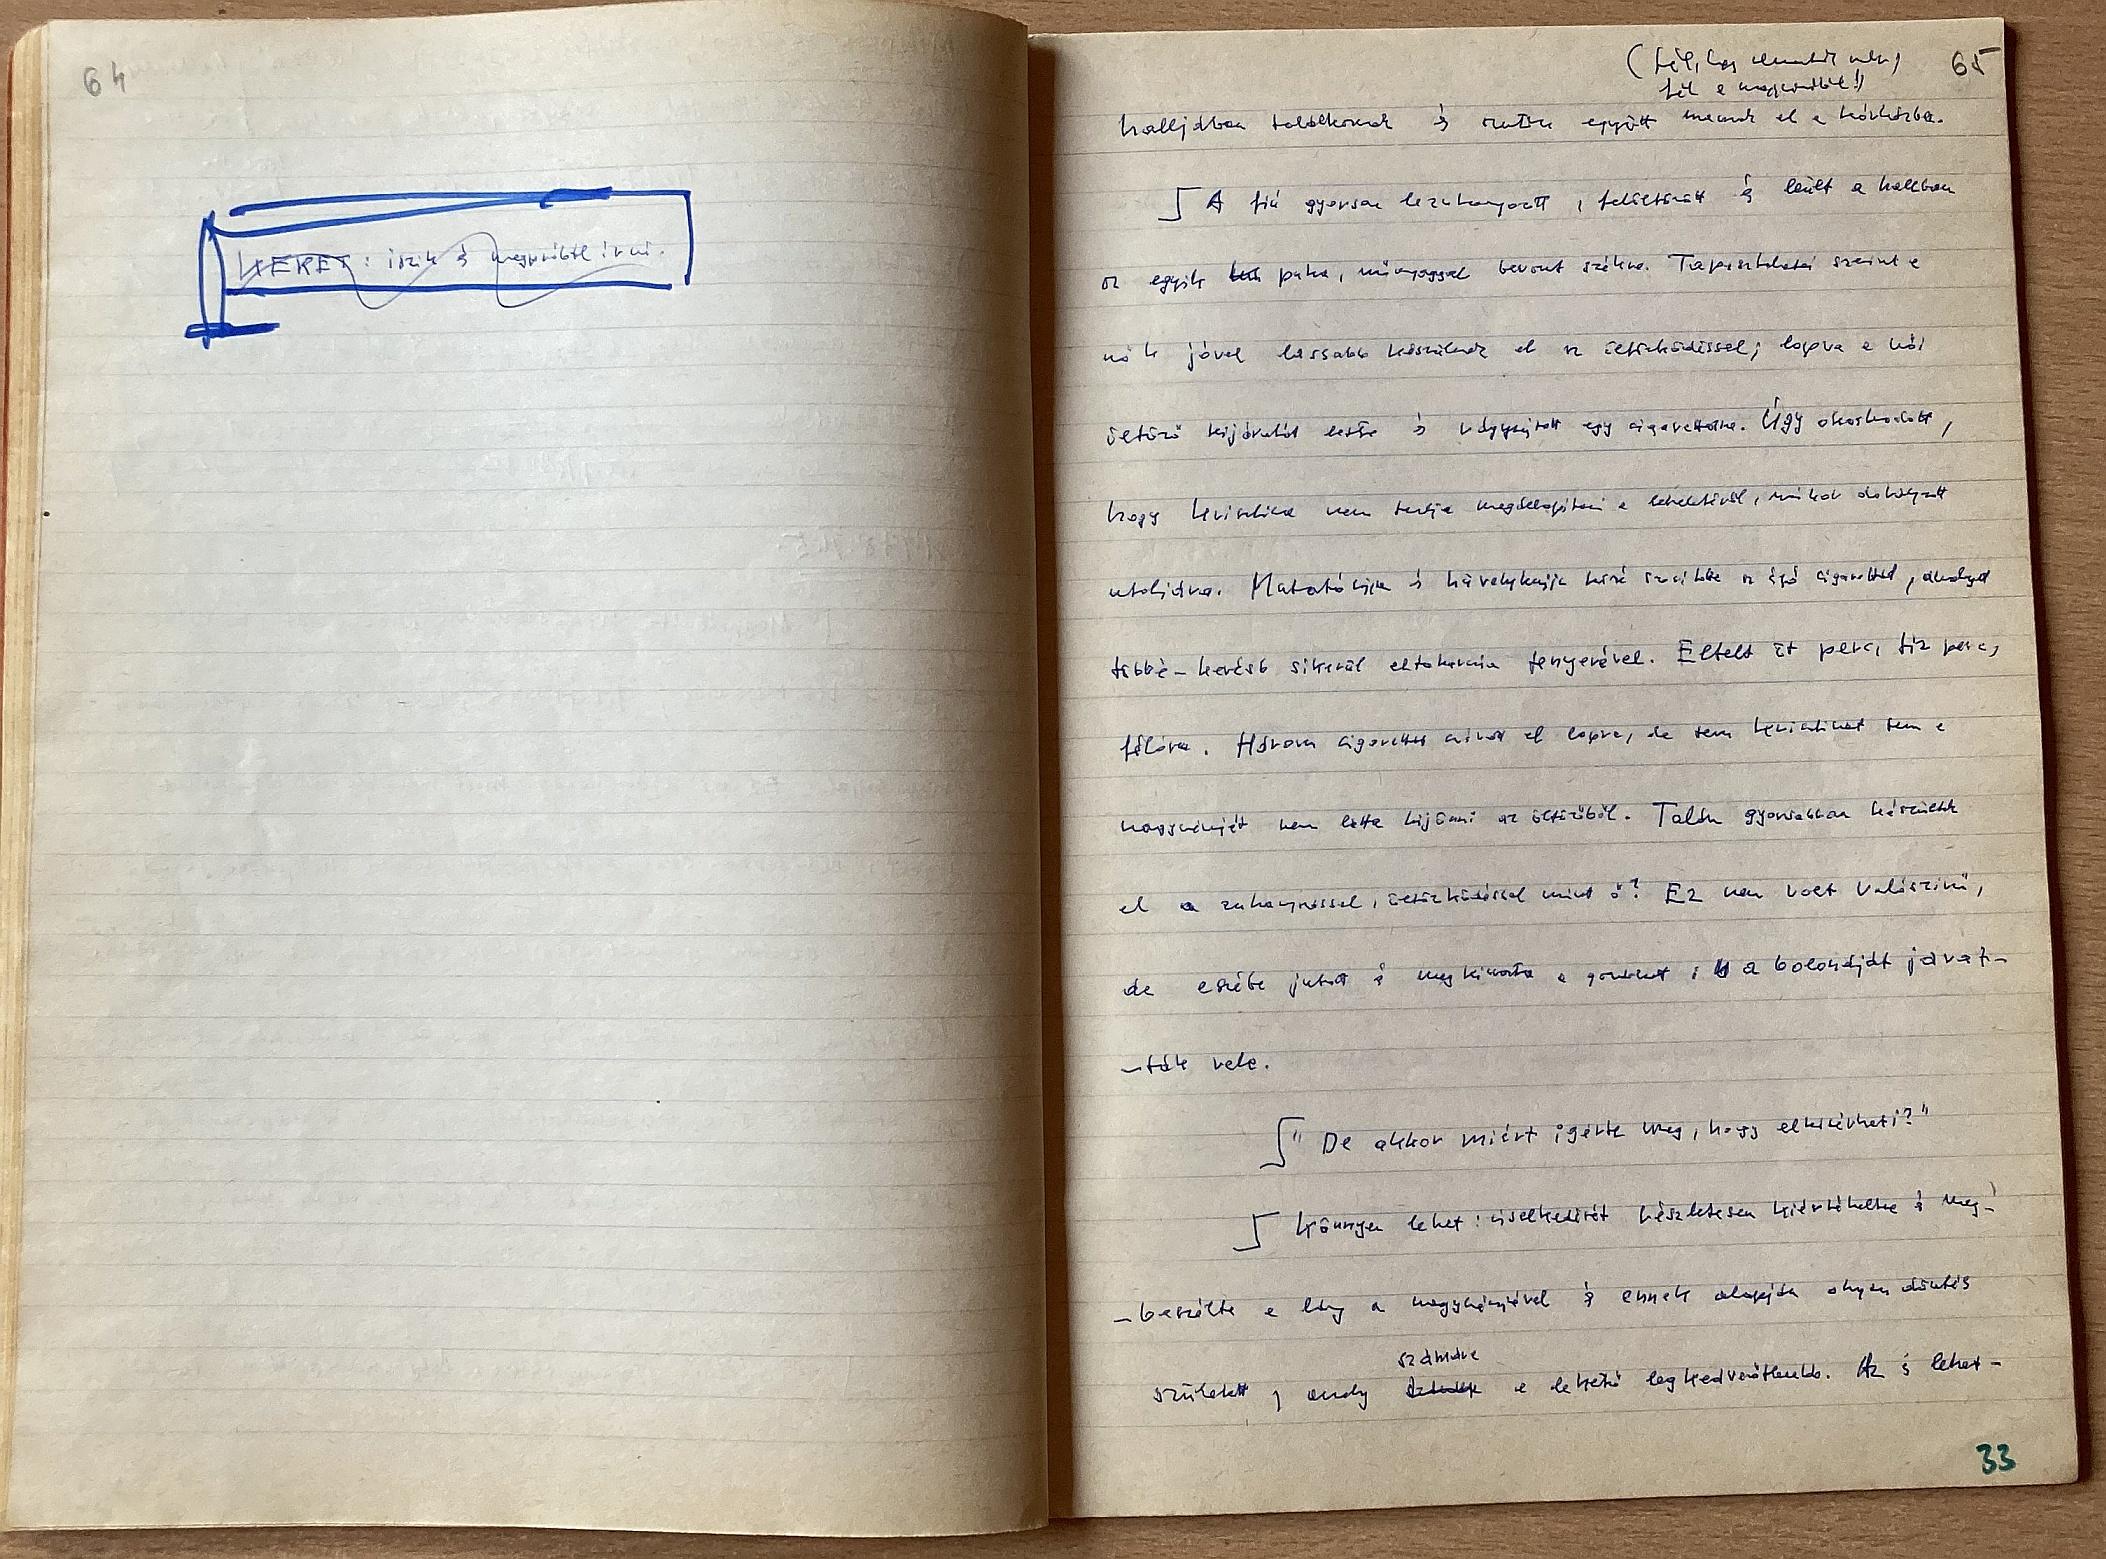 64
KERET: iszik és megpróbál írni.
65
(fél, hogy
fél a
halljában találkoznak és mennek el a kórházba.
A fiú gyorsan lezuhanyozott, felöltözött és leült a hallban
az egyik puha, műanyaggal bevont székre. Tapasztalatai szerint a
nők jóval lassabban készülnek el az öltözködéssel; lopva a női
öltöző kijáratát leste és rágyújtott egy cigarettára. Úgy okoskodott,
hogy Krisztina nem tudja megállapítani a leheletéről, mikor dohányzott
utoljára. Mutatóujja és hüvelykujja közé az égő cigarettát, amelyet
többé-kevésbé sikerül eltakarnia tenyerével. Eltelt öt perc, tíz perc,
félóra. Három cigarettát szívott el lopva, de sem Krisztinát sem a
nagynénjét nem látta kijönni az öltözőből. Talán gyorsabban készültek
el a zuhanyzással, öltözködéssel mint ő? Ez nem volt valószínű,
de eszébe jutott és megkínozta a gondolat: a bolondját járat-
-ták vele.
"De akkor miért ígérte meg, hogy elkísérheti?"
Könnyen lehet: viselkedését részletesen kiértékelte és meg-
-beszélte a lány a nagynénjével és ennek alapján olyan döntés
számára
született, amely a lehető legkedvezőtlenebb. Az is lehet-
33